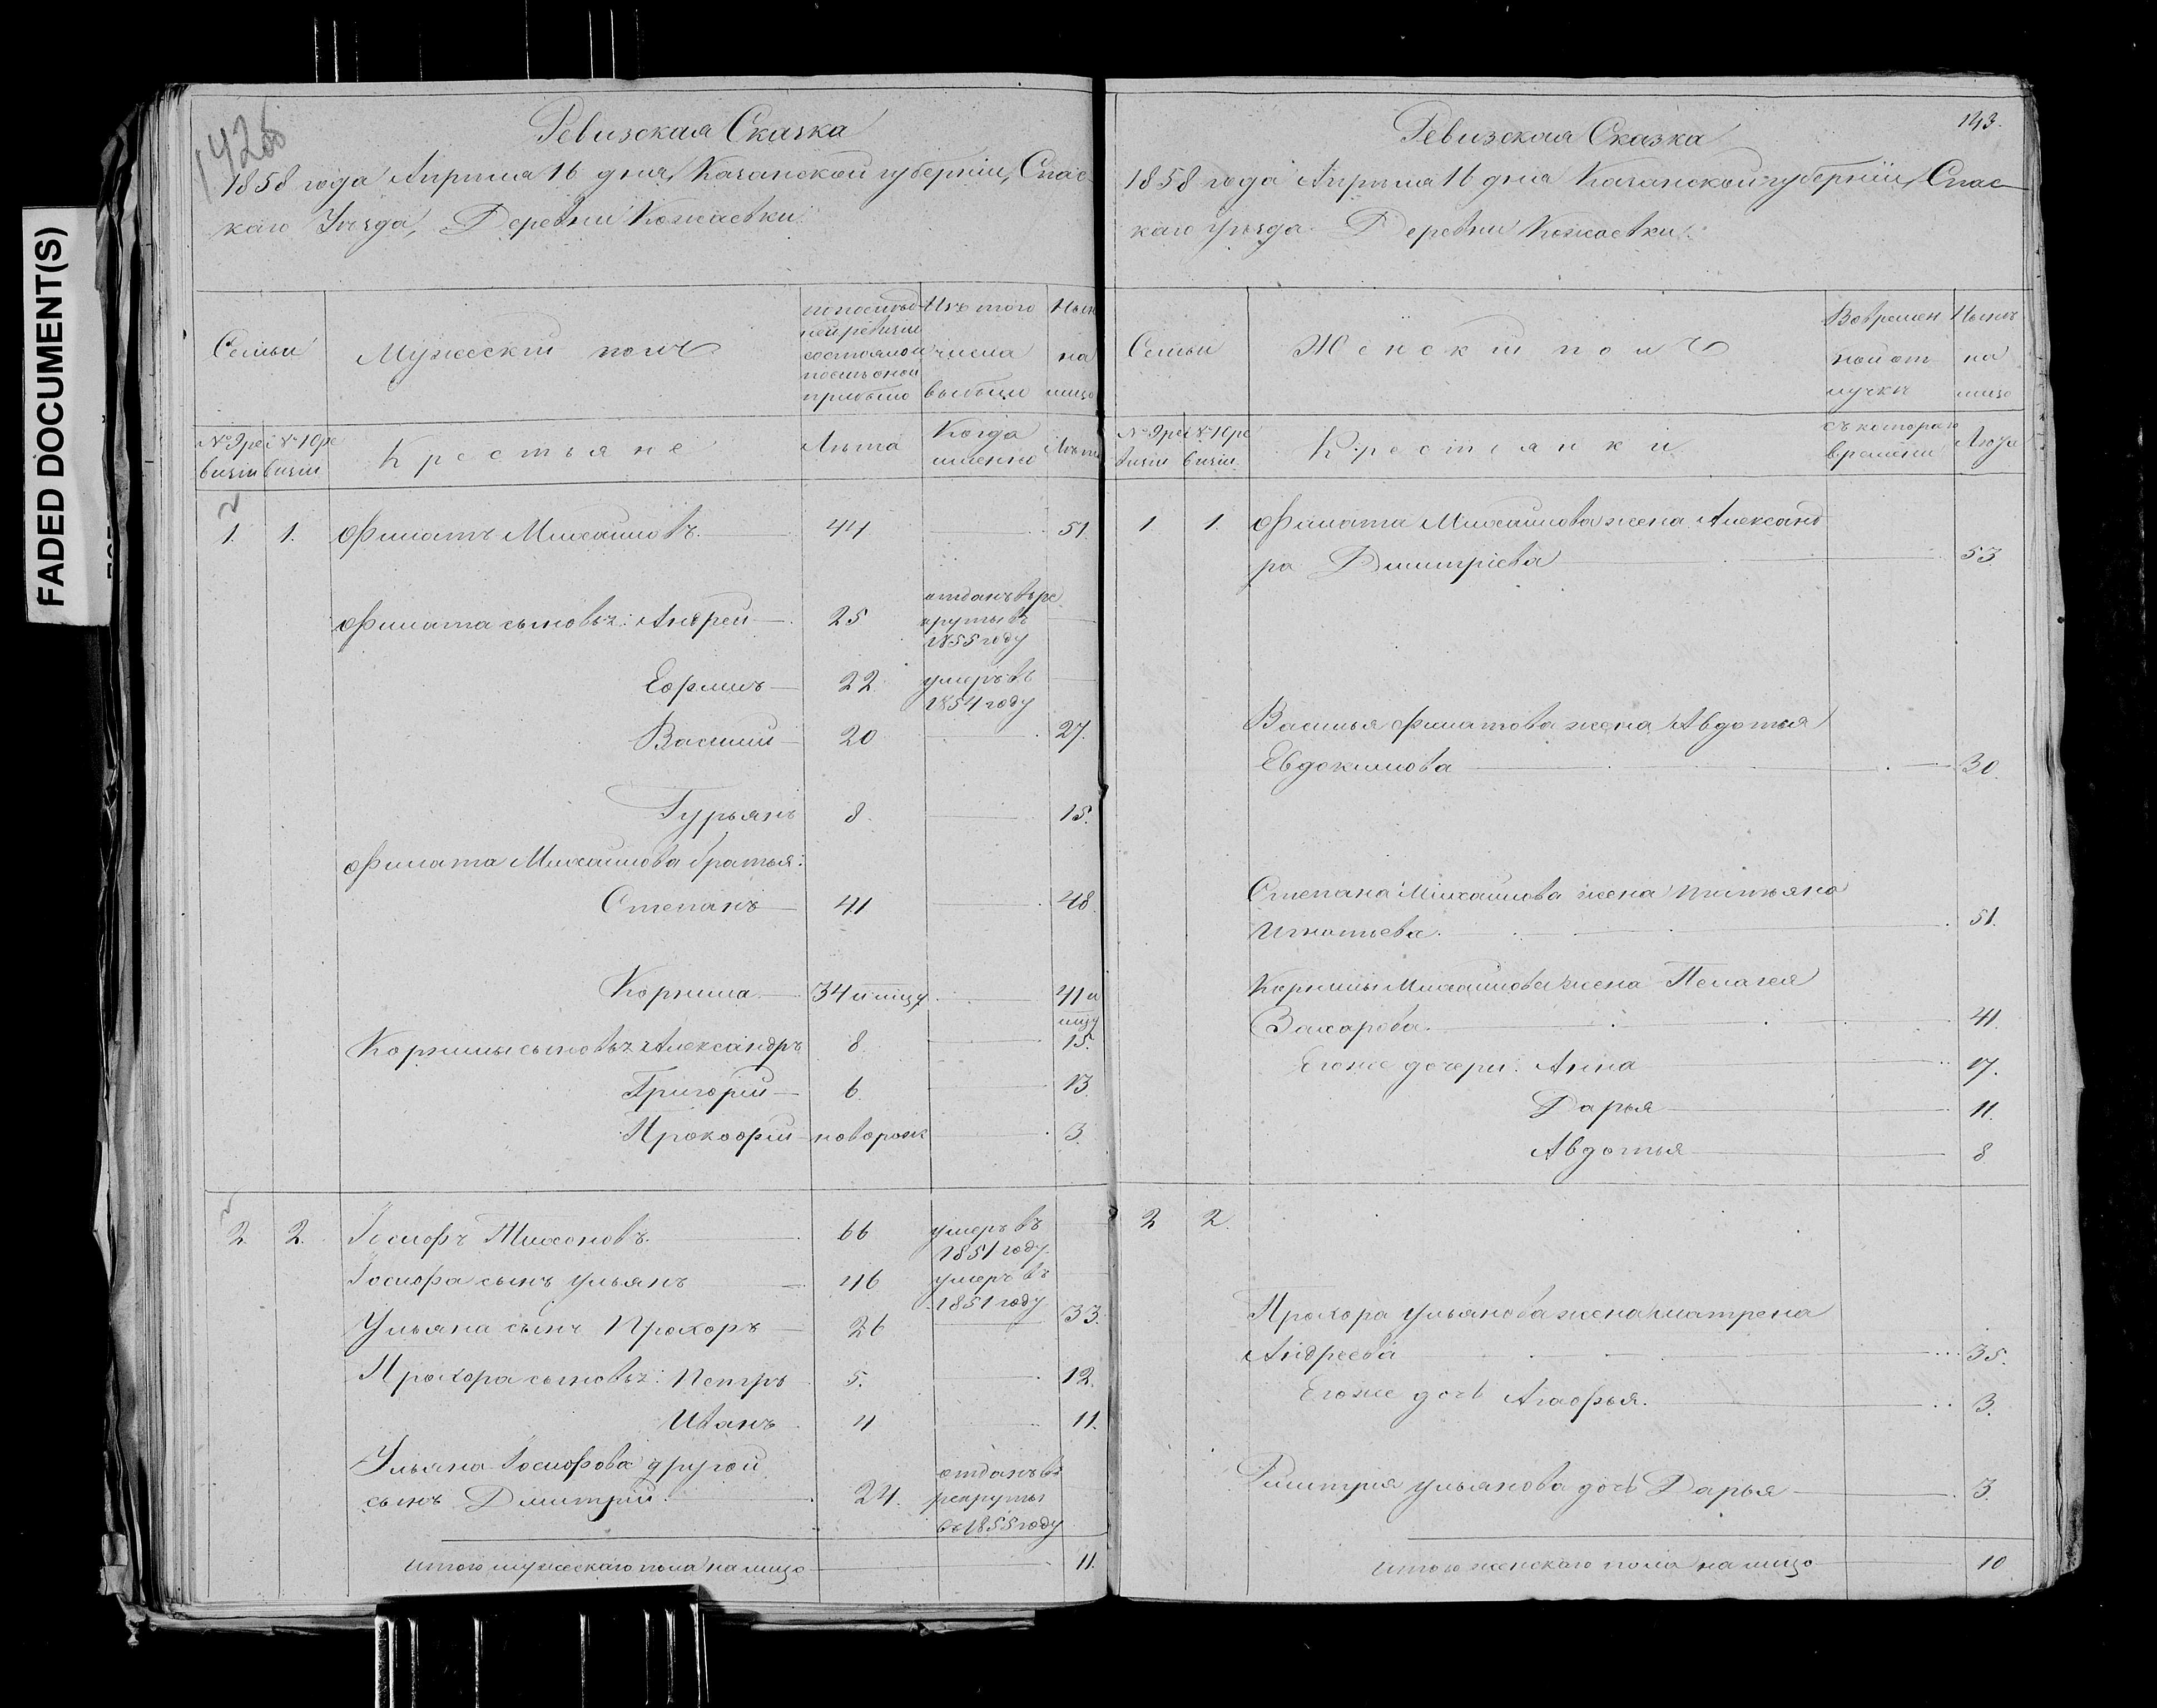 FADED DOCUMENT(S)
Ревизская Сказка
1858 года Апреля 16 дня, Казанской губерніи, Спас-
каго Уѣзда, Деревни Кожаевки.
Семьи
Мужескій полъ
по послѣд-
ней ревизіи
состояло и
послѣ оной
прибыло
Изъ того
числа
выбыли
Нын
на
лицо
№ 9 ре
визіи
№ 10 ре
визіи
Крестьяне
Лѣта
Когда
именно
Лѣта
1. 1. Филатъ Михайловъ. 44 51.
Филата сыновья: Андрей 25 отданъ въ ре
круты въ
1855 году
Ефимъ 22 умеръ въ
1854 году
Василий 20 27.
Гурьянъ 8. 15.
Филата Михайлова братья:
Степанъ 41 48.
Корнила 34 и лицу. 41 и
лицу
Корнилы сыновья Александръ 8. 15.
Григорій 6. 13.
Прокофій новорож 3.
2. 2. Іосифъ Тихоновъ. 66 умеръ въ
1851 году.
Іосифа сынъ Ульянъ 46 умеръ въ
1851 году
Ульяна сынъ Прохоръ 26 33.
Прохора сыновья: Петръ 5. 12.
Иванъ 4 11.
Ульяна Іосифова другой
сынъ Дмитрій. 24. отданъ въ
рекруты
въ 1855 году
Итого мужескаго пола на лицо 11.
143.
Ревизская Сказка
1858 года Апреля 16 дня Казанской губерніи, Спас-
каго уѣзда Деревни Кожаевки.
Семьи
Женскій полъ
Во времен
ной от
лучкѣ
Нынѣ
на
лицо
№ 9 ре
визіи
№ 10 ре
визіи
Крестьянки
съ котораго
времени
Лѣта
1 1. Филата Михайлова жена Александ
ра Димитріева 53
Василья Филатова жена Авдотья
Евдокимова 30.
Степана Михайлова жена Татьяна
Игнатьева. 51.
Корнилы Михайлова жена Пелагея
Захарова. 41.
Его же дочери: Анна 17.
Дарья 11.
Авдотья 8
2 2.
Прохора Ульянова жена Матрена
Андреева 35.
Его же дочь Агафья. 3.
Дмитрія Ульянова дочь Дарья 3.
Итого женскаго пола на лицо 10